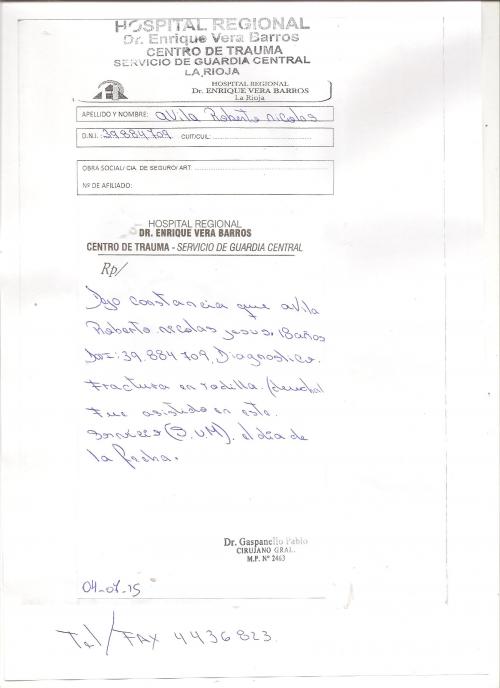 HOSPITAL REGIONAL
Dr. Enrique Vera Barros
CENTRO DE TRAUMA
SERVICIO DE GUARDIA CENTRAL
LA RIOJA
HOSPITAL REGIONAL
Dr. ENRIQUE VERA BARROS
La Rioja
APELLIDO Y NOMBRE: avila Roberto nicolas
D.N.I.: 39.884709 CUIT/CUIL:
OBRA SOCIAL/ CIA. DE SEGURO/ ART:
Nº DE AFILIADO:
HOSPITAL REGIONAL
DR. ENRIQUE VERA BARROS
CENTRO DE TRAUMA - SERVICIO DE GUARDIA CENTRAL
Rp/
Dejo constancia que avila
Roberto nicolas jesus. 18 años
39.884709, Diagnostico.
Fractura en rodilla (derecha)
Fue asistido en este
servicio el dia de
la fecha.
Dr. Gaspanello Pablo
CIRUJANO GRAL.
M.P. Nº 2463
04-07-15
Tel/FAX 4436823